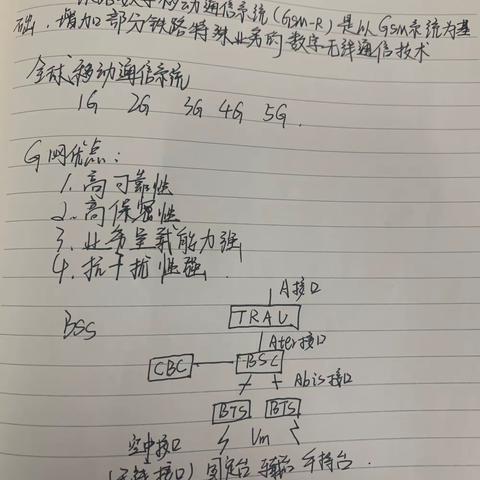 数字移动通信系统(GSM-R)是以GSM系统为基
础,增加部分铁路特殊业务的数字无线通信技术
全球移动通信系统
1G 2G 3G 4G 5G.
G网优点:
1.高可靠性
2.高保密性
3.业务承载能力强
4.抗干扰性强.
A接口
BSS TRAU
Ater接口
CBC BSC
Abis接口
BTS BTS
空中接口 Um
(无线接口) 固定台 车载台 手持台.